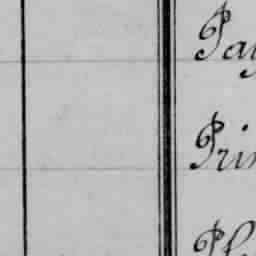 Pay
Prin
Ph